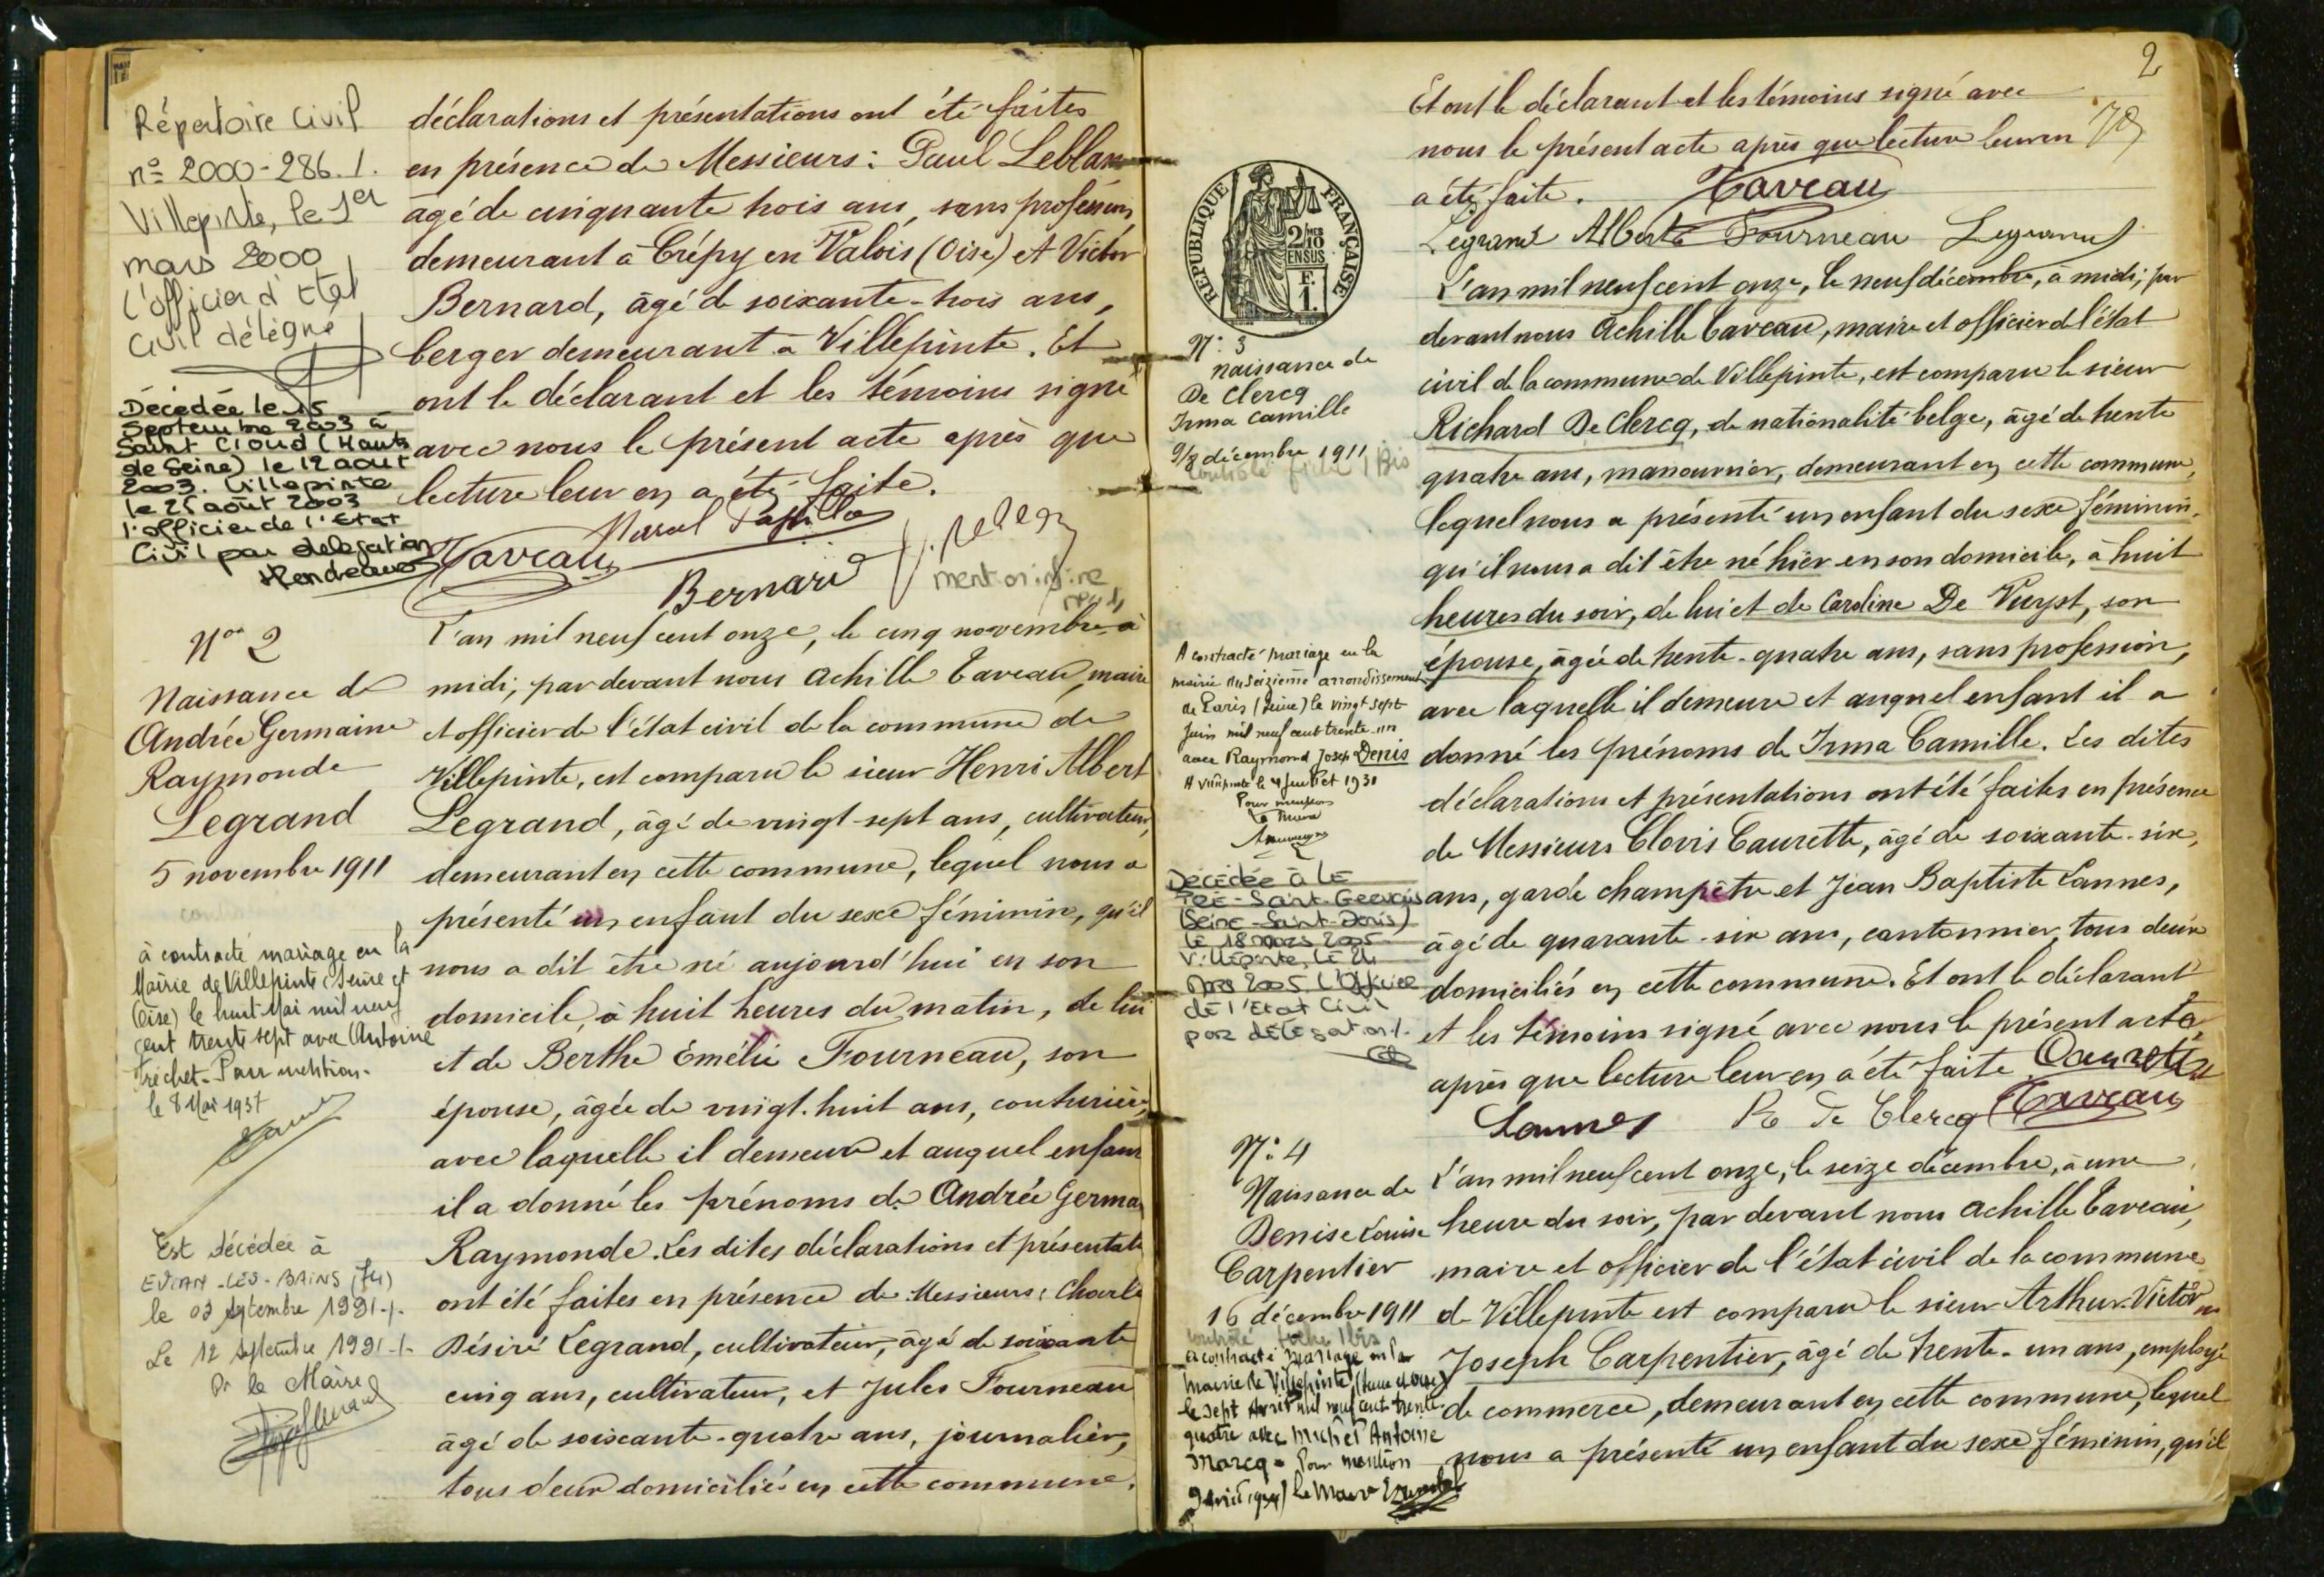 Répertoire Civil
nº 2000-286.1.
Villepinte, le 1er
mars 2000
L'officier d'Etat
Civil délégué
Décédée le 15
Septembre 2003 à
Saint Cloud (Hauts
de Seine) le 12 aout
2003. Villepinte
le 25 août 2003
l'officier de l'Etat
Civil par delegation
déclarations et présentations ont été faites
en présence de Messieurs: Paul Leblanc
âgé de cinquante trois ans, sans profession,
demeurant à Crépy en Valois (Oise) et Victor
Bernard, âgé de soixante-trois ans,
berger demeurant à Villepinte. Et
ont le déclarant et les témoins signé
avec nous le présent acte après que
lecture leur en a été faite.
Taveau
Bernard
Nº 2
Naissance de
Andrée Germaine
Raymonde
Legrand
5 novembre 1911
à contracté mariage en la
Mairie de Villepinte (Seine et
Oise) le huit Mai mil neuf
cent trente sept avec Antoine
Tréchet - Pour mention -
le 8 Mai 1937
Est décédée à
EVIAN-LES-BAINS (74)
le 03 septembre 1991-/-
Le 12 septembre 1991-/-
Pr le Maire
L'an mil neuf cent onze, le cinq novembre à
midi, par devant nous Achille Taveau, maire
et officier de l'état civil de la commune de
Villepinte, est comparu le sieur Henri Albert
Legrand, âgé de vingt-sept ans, cultivateur,
demeurant en cette commune, lequel nous a
présenté un enfant du sexe féminin, qu'il
nous a dit être né aujourd'hui en son
domicile, à huit heures du matin, de lui
et de Berthe Émélie Fourneau, son
épouse, âgée de vingt-huit ans, couturière,
avec laquelle il demeure et auquel enfant
il a donné les prénoms de Andrée Germa
Raymonde. Les dites déclarations et présentati
ont été faites en présence de Messieurs: Charle
Désiré Legrand, cultivateur, âgé de soixante
cinq ans, cultivateur, et Jules Fourneau
âgé de soixante-quatre ans, journalier,
tous deux domiciliés en cette commune.
2
Et ont le déclarant et les témoins signé avec
nous le présent acte après que lecture leur en
a été faite. Taveau
Legrand Albert Fourneau Legrand
RÉPUBLIQUE FRANÇAISE
2/10
EN SUS
F.
1.
Nº 3
naissance de
De Clercq
Irma Camille
9/8 décembre 1911
contrôlé fiche 1 Bis
A contracté mariage en la
mairie du seizième arrondissement
de Paris (Seine) le vingt sept
Juin mil neuf cent trente un
avec Raymond Joseph Denis
A Villepinte le 4 Juillet 1931
Pour mention
Le Maire
Décédée à LE
PRE-Saint-Gervais
(Seine-Saint-Denis)
le 18 mars 2005
Villepinte, le 24
Mars 2005 L'Officier
de l'Etat Civil
par délégation./.
L'an mil neuf cent onze, le neuf décembre, à midi, par
devant nous Achille Taveau, maire et officier de l'état
civil de la commune de Villepinte, est comparu le sieur
Richard De Clercq, de nationalité belge, âgé de trente
quatre ans, manouvrier, demeurant en cette commune,
lequel nous a présenté un enfant du sexe féminin,
qu'il nous a dit être né hier en son domicile, à huit
heures du soir, de lui et de Caroline De Vuyst, son
épouse, âgée de trente-quatre ans, sans profession,
avec laquelle il demeure et auquel enfant il a
donné les prénoms de Irma Camille. Les dites
déclarations et présentations ont été faites en présence
de Messieurs Clovis Caurette, âgé de soixante-six,
ans, garde champêtre et Jean Baptiste Lannes,
âgé de quarante-six ans, cantonnier, tous deux
domiciliés en cette commune. Et ont le déclarant
et les témoins signé avec nous le présent acte,
après que lecture leur en a été faite Caurette
Lannes R De Clercq Taveau
Nº 4
Naissance de
Denise Louise
Carpentier
16 décembre 1911
contrôlé fiche 1 bis
a contracté mariage en la
mairie de Villepinte (Seine et Oise)
le sept Avril mil neuf cent trente
quatre avec Michel Antoine
Marcq - Pour mention
9 avril 1934 Le Maire
L'an mil neuf cent onze, le seize décembre, à une
heure du soir, par devant nous Achille Taveau,
maire et officier de l'état civil de la commune
de Villepinte est comparu le sieur Arthur Victor
Joseph Carpentier, âgé de trente-un ans, employé
de commerce, demeurant en cette commune, lequel
nous a présenté un enfant du sexe féminin, qu'il